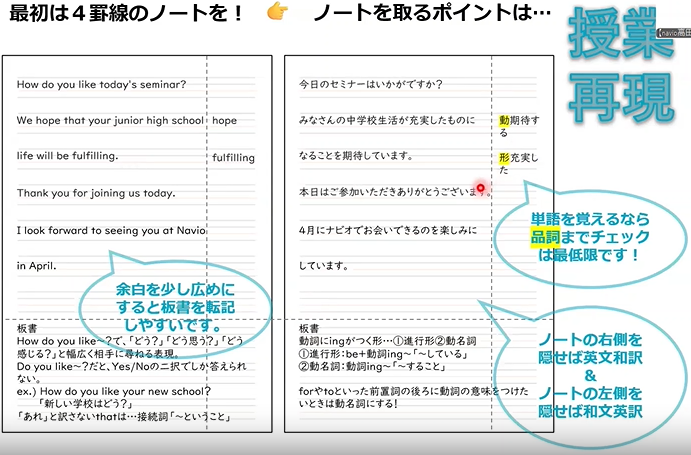 最初は４罫線のノートを！　👉　ノートを取るポイントは…
授業
再現
How do you like today's seminar?
We hope that your junior high school
hope
life will be fulfilling.
fulfilling
Thank you for joining us today.
I look forward to seeing you at Navio
in April.
余白を少し広めに
すると板書を転記
しやすいです。
板書
How do you like~?で、「どう?」「どう思う?」「どう
感じる?」と幅広く相手に尋ねる表現。
Do you like~?だと、Yes/Noの二択でしか答えられ
ない。
ex.) How do you like your new school?
「新しい学校はどう?」
「あれ」と訳さないthatは…接続詞「~ということ」
今日のセミナーはいかがですか?
みなさんの中学校生活が充実したものに
動期待す
る
なることを期待しています。
形充実し
た
本日はご参加いただきありがとうございます。
4月にナビオでお会いできるのを楽しみに
しています。
単語を覚えるなら
品詞までチェック
は最低限です！
板書
動詞にingがつく形…①進行形②動名詞
①進行形:be+動詞ing~「~している」
②動名詞:動詞ing~「~すること」
forやtoといった前置詞の後ろに動詞の意味をつけた
いときは動名詞にする!
ノートの右側を
隠せば英文和訳
&
ノートの左側を
隠せば和文英訳